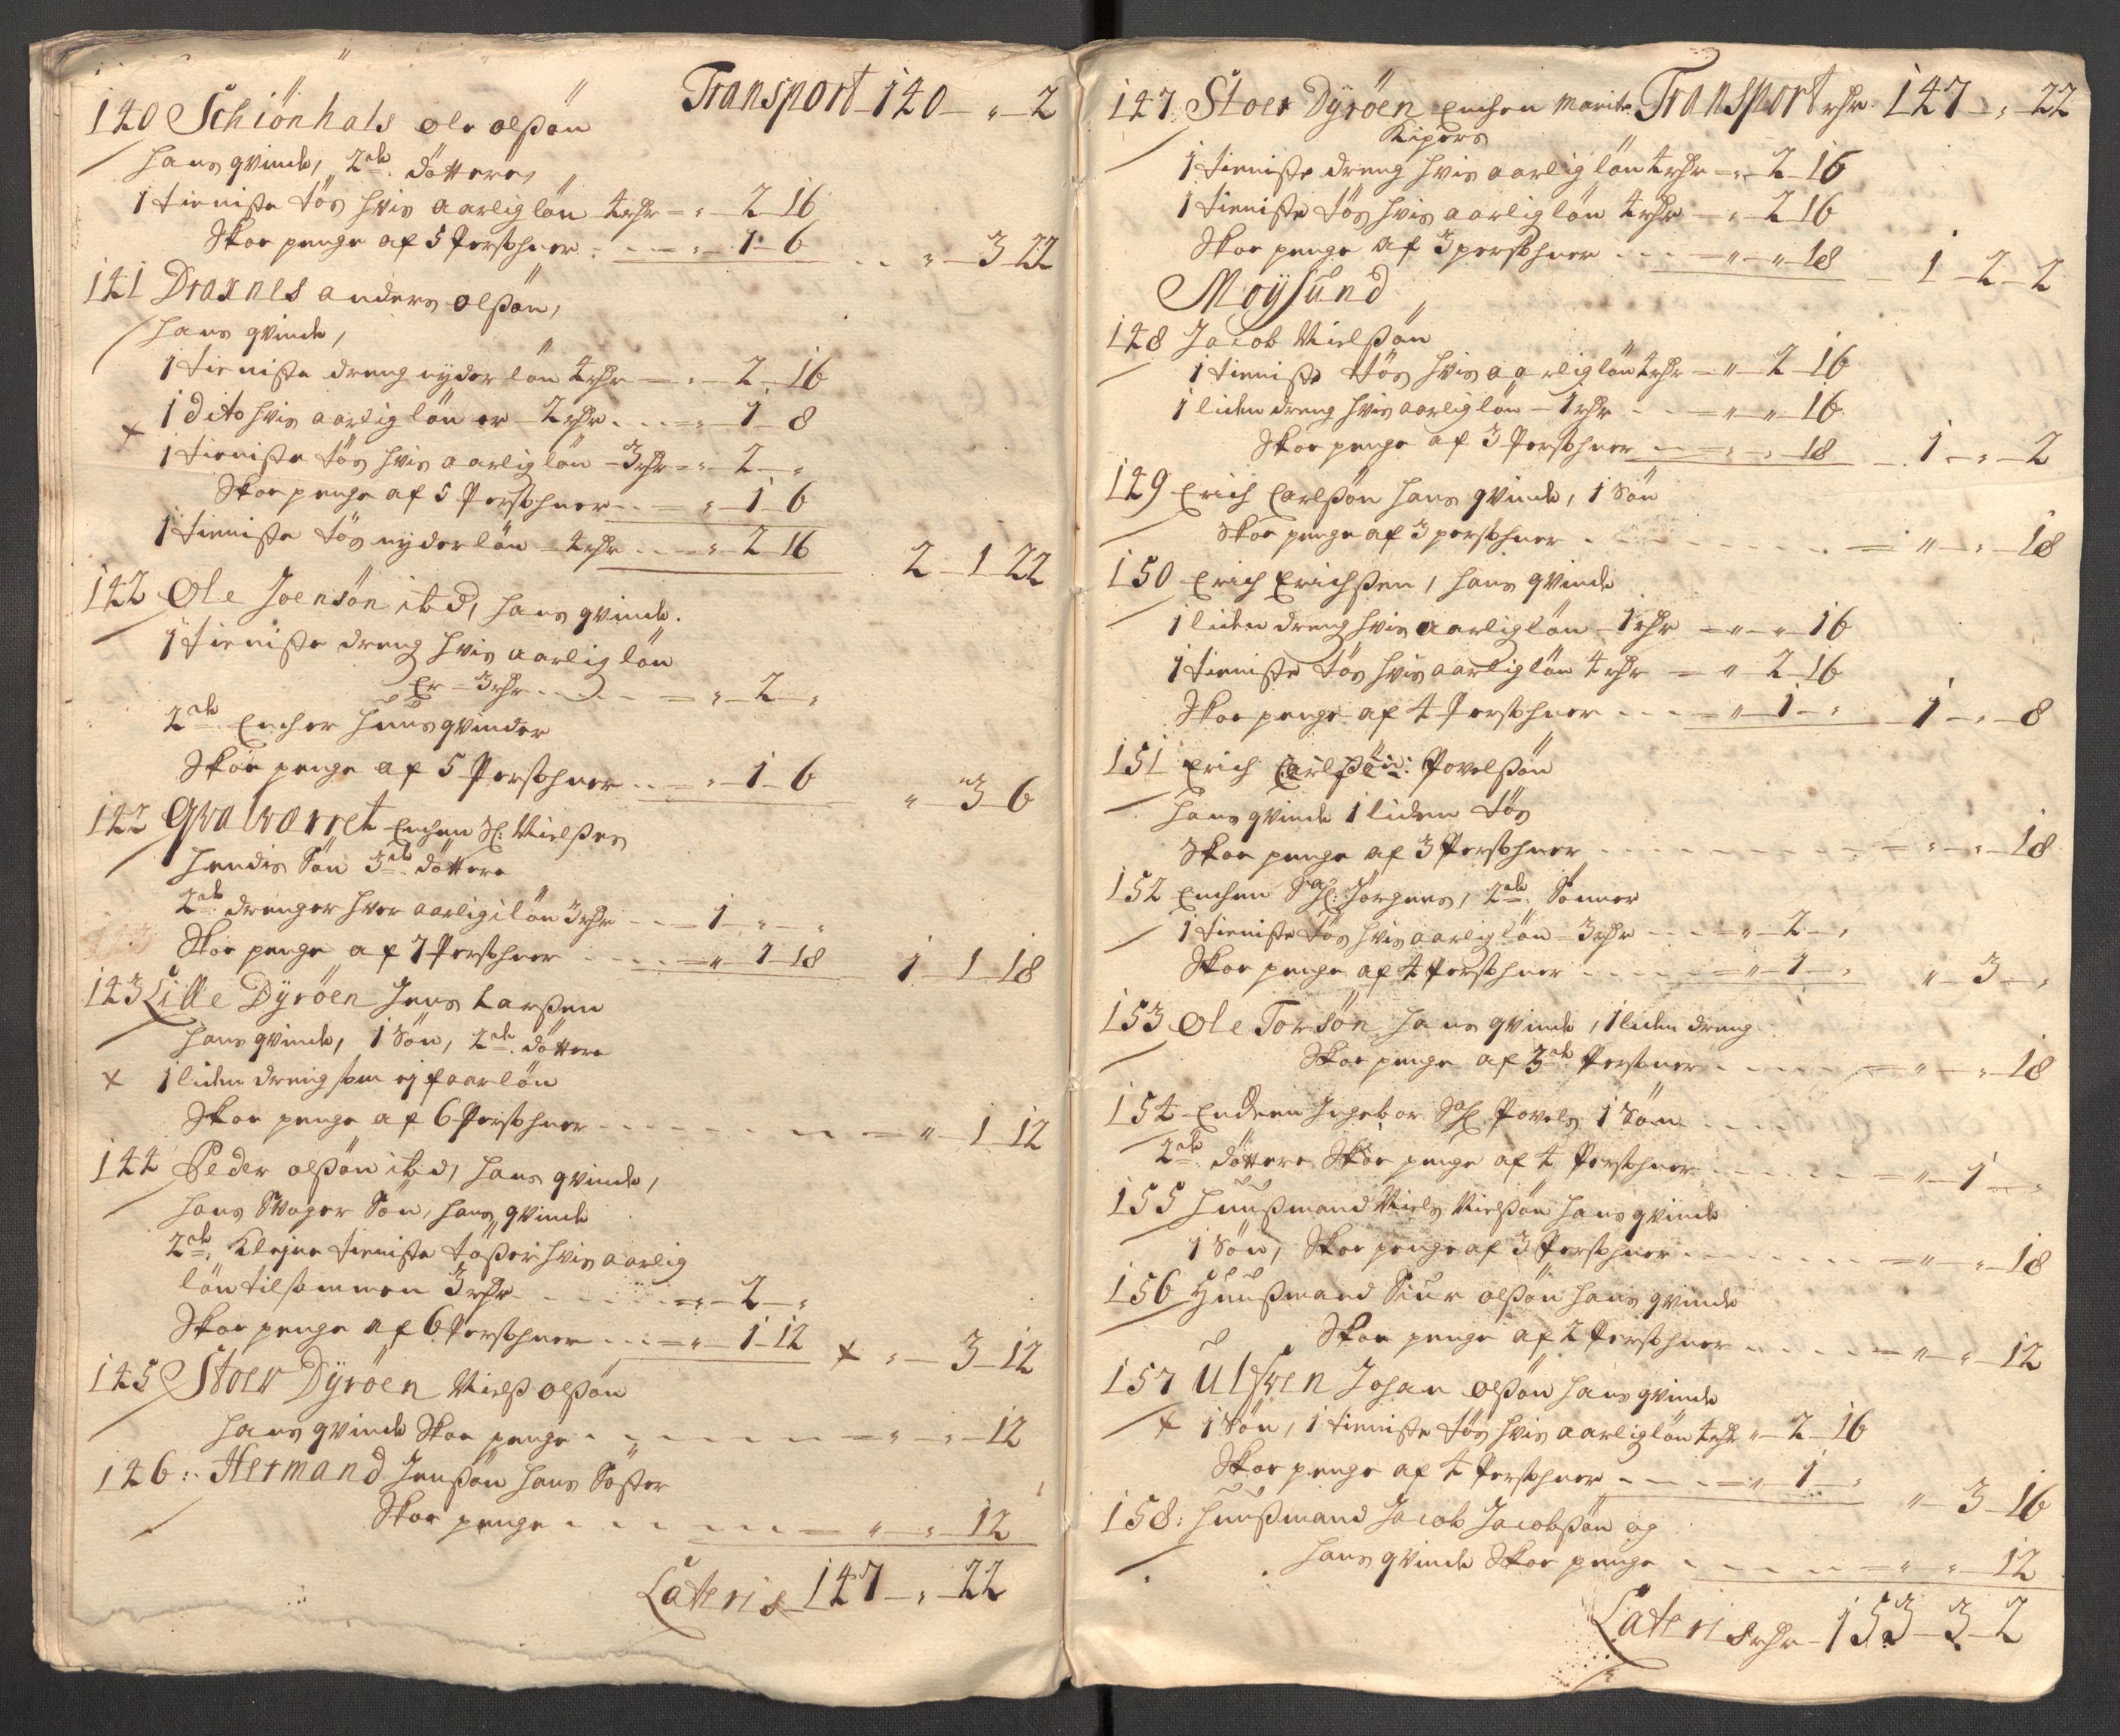 Transport - 140 - " - 2
140 Schiönhals Ole olßön
hans qvinde, 2de döttere,
1 tieniste tös hvis aarlig lön 4 rdr - " - 2 - 16
Skoe penge af 5 Persohner . . - " - 1 - 6 . . " - 3 - 22
141 Draxnes anders olßön,
hans qvinde,
1 tieniste dreng nyder lön 4 rdr - " - 2 - 16
1 dito hvis aarlig lön er - 2 rdr . . - " - 1 - 8
1 tieniste tös hvis aarlig lön - 3 rdr - " - 2 - "
Skoe penge af 5 Persohner . . - " - 1 - 6
1 tieniste tös nyder lön - 4 rdr . . - " - 2 - 16 2 - 1 - 22
142 Ole Joensön ibd, hans qvinde.
1 tieniste dreng hvis aarlig lön
Er - 3 rdr . . . - " - 2 - "
2de Encher huusqvinder
Skoe penge af 5 Persohner . . - " - 1 - 6 " - 3 - 6
142 Qvalværret Enchen Sl: Nielßes
hendis Sön 3de döttere
2de drenger hver aarlig lön 3 rdr - - 1 - " - "
Skoe penge af 7 Persohner . . . - " - 1 - 18 1 - 1 - 18
143 Lille Dyröen Jens Larßen
hans qvinde, 1 Sön, 2de döttere
1 liden dreng som ej faar lön
Skoe penge af 6 Persohner - - - - " - 1 - 12
144 Peder olßön ibd, hans qvinde,
hans Svoger Sön, hans qvinde
2de Klejne tieniste tößer hvis aarlig
lön tilsammen 3 rdr . . . - " - 2 - "
Skoe penge af 6 Persohner . . - " - 1 - 12 " - 3 - 12
145 Stoer Dyröen Nielß olßön
hans qvinde Skoe penge . - - - - " - " - 12
146 : Hermand Jenßön hans Söster
Skoe penge . - - - - " - " - 12
Lateris - 147 - " - 22
147 Stoer Dyröen Enchen Marite Transport rdr 147 - " - 22
Kipers
1 tieniste dreng hvis aarlig lön 4 rdr - " - 2 - 16
1 tieniste tös hvis aarlig lön 4 rdr - " - 2 - 16
Skoe penge af 3 persohner . . . - " - " - 18 - 1 - 2 - 2
Moysund
148 Jacob Nielßön
1 tieniste tös hvis aarlig lön 4 rdr - " - 2 - 16
1 liden dreng hvis aarlig lön - 1 rdr . . - " - " - 16
Skoe penge af 3 Persohner - - " - " - 18 - 1 - " - 2
149 Erich Carlßön hans qvinde, 1 Sön
Skoe penge af 3 persohner . - - - - " - " - 18
150 Erich Erichßen, hans qvinde
1 liden dreng hvis aarlig lön - 1 rdr - " - " - 16
1 tieniste tös hvis aarlig lön 4 rdr - " - 2 - 16
Skoe penge af 4 Persohner . . . - " - 1 - " - 1 - " - 8
151 Erich Carlßön: Povelßön
hans qvinde 1 liden tös
Skoe penge af 3 Persohner . - - - - " - " - 18
152 Enchen Sal: Jörgens, 2de Sönner
1 tieniste tös hvis aarlig lön - 3 rdr - - - " - 2 - "
Skoe penge af 4 Persohner . . . - " - 1 - " " - 3 - "
153 Ole Torsön hans qvinde, 1 liden dreng
Skoe penge af 3de Persohner . . . - " - " - 18
154 Enchen Ingebor Sal Povels 1 Sön
2de döttere Skoe penge af 4 Persohner . . . - " - 1 - "
155 huußmand Niels Nielßön hans qvinde
1 Sön, Skoe penge af 3 Persohner . . . - " - " - 18
156 Huußmand Siur olßön hans qvinde
Skoe penge af 2 Persohner . . . - " - " - 12
157 Ulfven Johan olßön hans qvinde
1 Sön, 1 tieniste tös hvis aarlig lön 4 rdr " - 2 - 16
Skoe penge af 4 Persohner . . . - " - 1 - " " - 3 - 16
158: huußmand Jacob Jacobßön og
hans qvinde Skoe penge . - - - " - " - 12
Lateris rdr - 153 - 3 - 2